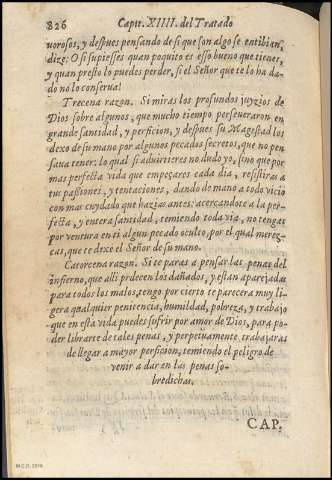 826 Capit. XIIII. del Tratado
uorosos, y despues pensando de si que son algo se entibian,
dize: O si supiesses quan poquito es esso bueno que tienes,
y quan presto lo puedes perder, si el Señor que te lo ha da-
do no lo conserua!
Trecena razon. Si miras los profundos juyzios de
Dios sobre algunos, que mucho tiempo perseueraron en
grande santidad, y perficion, y despues su Magestad los
dexo de su mano por algunos pecados secretos, que no pen-
saua tener: lo qual si aduirtieres no dudo yo, sino que por
mas perfecta vida que empeçares cada dia, resistiras a
tus passiones, y tentaciones, dando de mano a todo vicio
con mas cuydado que hazias antes: acercandote a la per-
fecta, y entera santidad, temiendo toda via, no tengas
por ventura en ti algun pecado oculto, por el qual merez-
cas, que te dexe el Señor de su mano.
Catorcena razon. Si te paras a pensar las penas del
infierno, que alli padecen los dañados, y estan aparejadas
para todos los malos, tengo por cierto te parecera muy li-
gera qualquier penitencia, humildad, pobreza, y trabajo
que en esta vida puedes sufrir por amor de Dios, para po-
der librarte de tales penas, y perpetuamente trabajaras
de llegar a mayor perficion, temiendo el peligro de
venir a dar en las penas so-
bredichas.
CAP.